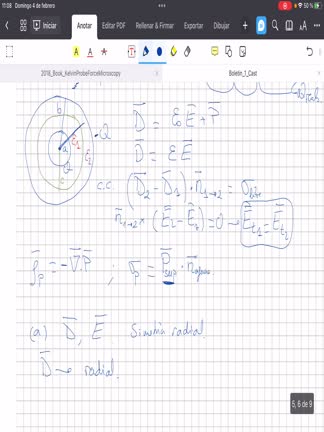 11:08 Domingo 4 de febrero
50 %
Iniciar Anotar Editar PDF Rellenar & Firmar Cambiar Dibujar
2018_Book_KelvinProbeForceMicroscopy Boletin_1_Cast
b
D⃗ = ε₀ E⃗ + P⃗
-Q
ε₁ ε₂
a
D⃗ = ε E⃗
Q
c
c.c. (D⃗₂ - D⃗₁) · n⃗₁→₂ = σ
n⃗₁→₂ × (E⃗₂ - E⃗₁) = 0 → E⃗t₁ = E⃗t₂
ρ⃗p = -∇⃗·P⃗ ; σp = P⃗sup · n⃗
(a) D⃗, E⃗ Simetría radial.
D⃗ → radial.
5, 6 de 9